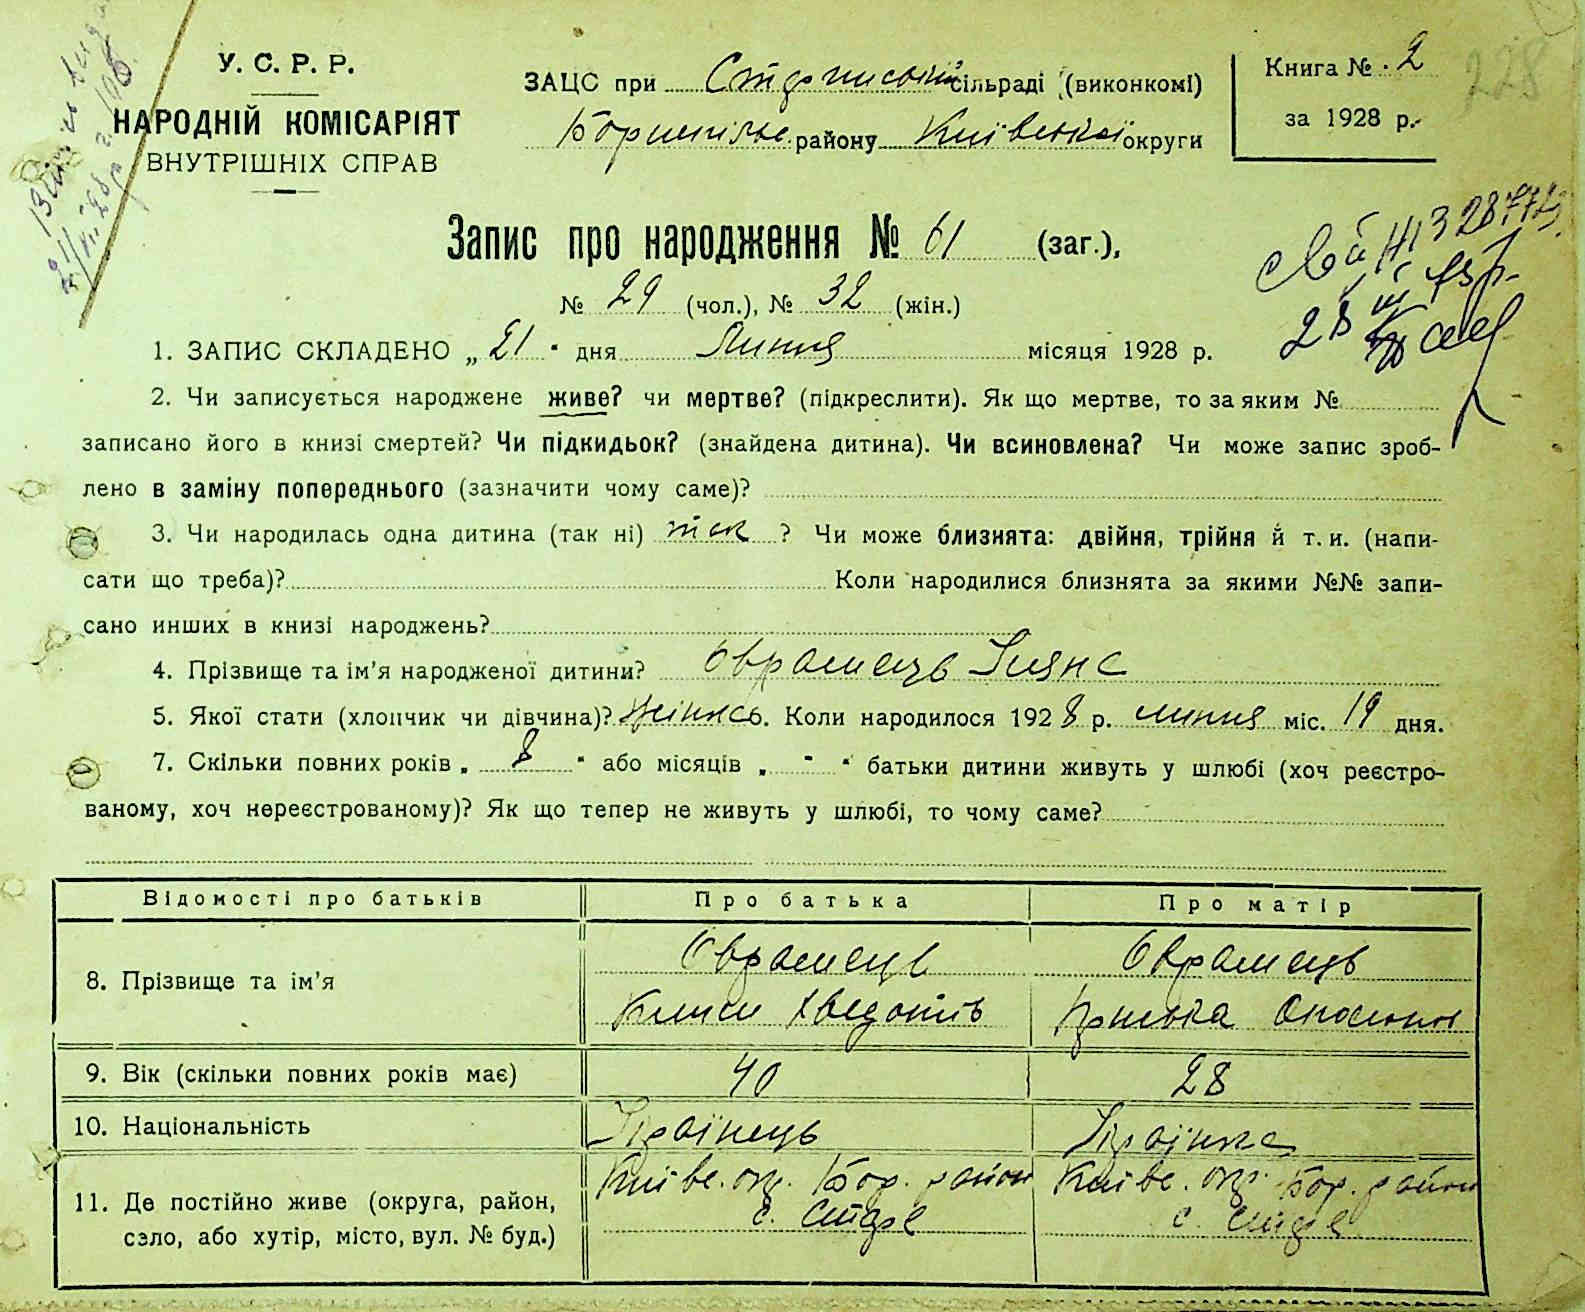 У. С. Р. Р.
НАРОДНІЙ КОМІСАРІЯТ
ВНУТРІШНІХ СПРАВ
ЗАЦС при Старинській сільраді (виконкомі)
Бориспільс. району Київської округи
Книга № 2
за 1928 р.
228
Запис про народження № 61 (заг.),
№ 29 (чол.), № 32 (жін.)
1. ЗАПИС СКЛАДЕНО „ 21 " дня Липня місяця 1928 р.
2. Чи записується народжене живе? чи мертве? (підкреслити). Як що мертве, то за яким №
записано його в книзі смертей? Чи підкидьок? (знайдена дитина). Чи всиновлена? Чи може запис зроб-
лено в заміну попереднього (зазначити чому саме)?
3. Чи народилась одна дитина (так ні) так ? Чи може близнята: двійня, трійня й т. и. (напи-
сати що треба)? Коли народилися близнята за якими №№ запи-
сано инших в книзі народжень?
4. Прізвище та ім'я народженої дитини? Овраменць Уляна
5. Якої стати (хлопчик чи дівчина)? жіноч. 6. Коли народилося 1928 р. липня міс. 19 дня.
7. Скільки повних років „ 8 " або місяців „ - " батьки дитини живуть у шлюбі (хоч реєстро-
ваному, хоч нереєстрованому)? Як що тепер не живуть у шлюбі, то чому саме?
Відомості про батьків Про батька Про матір
8. Прізвище та ім'я
Оврамець Оврамець
Клим Хведотів Пріська
9. Вік (скільки повних років має) 40 28
10. Національність Українець Українка
11. Де постійно живе (округа, район,
сэло, або хутір, місто, вул. № буд.)
Київс. окр. Бор. район Київс. окр. Бор. район
с. Старе с. Старе